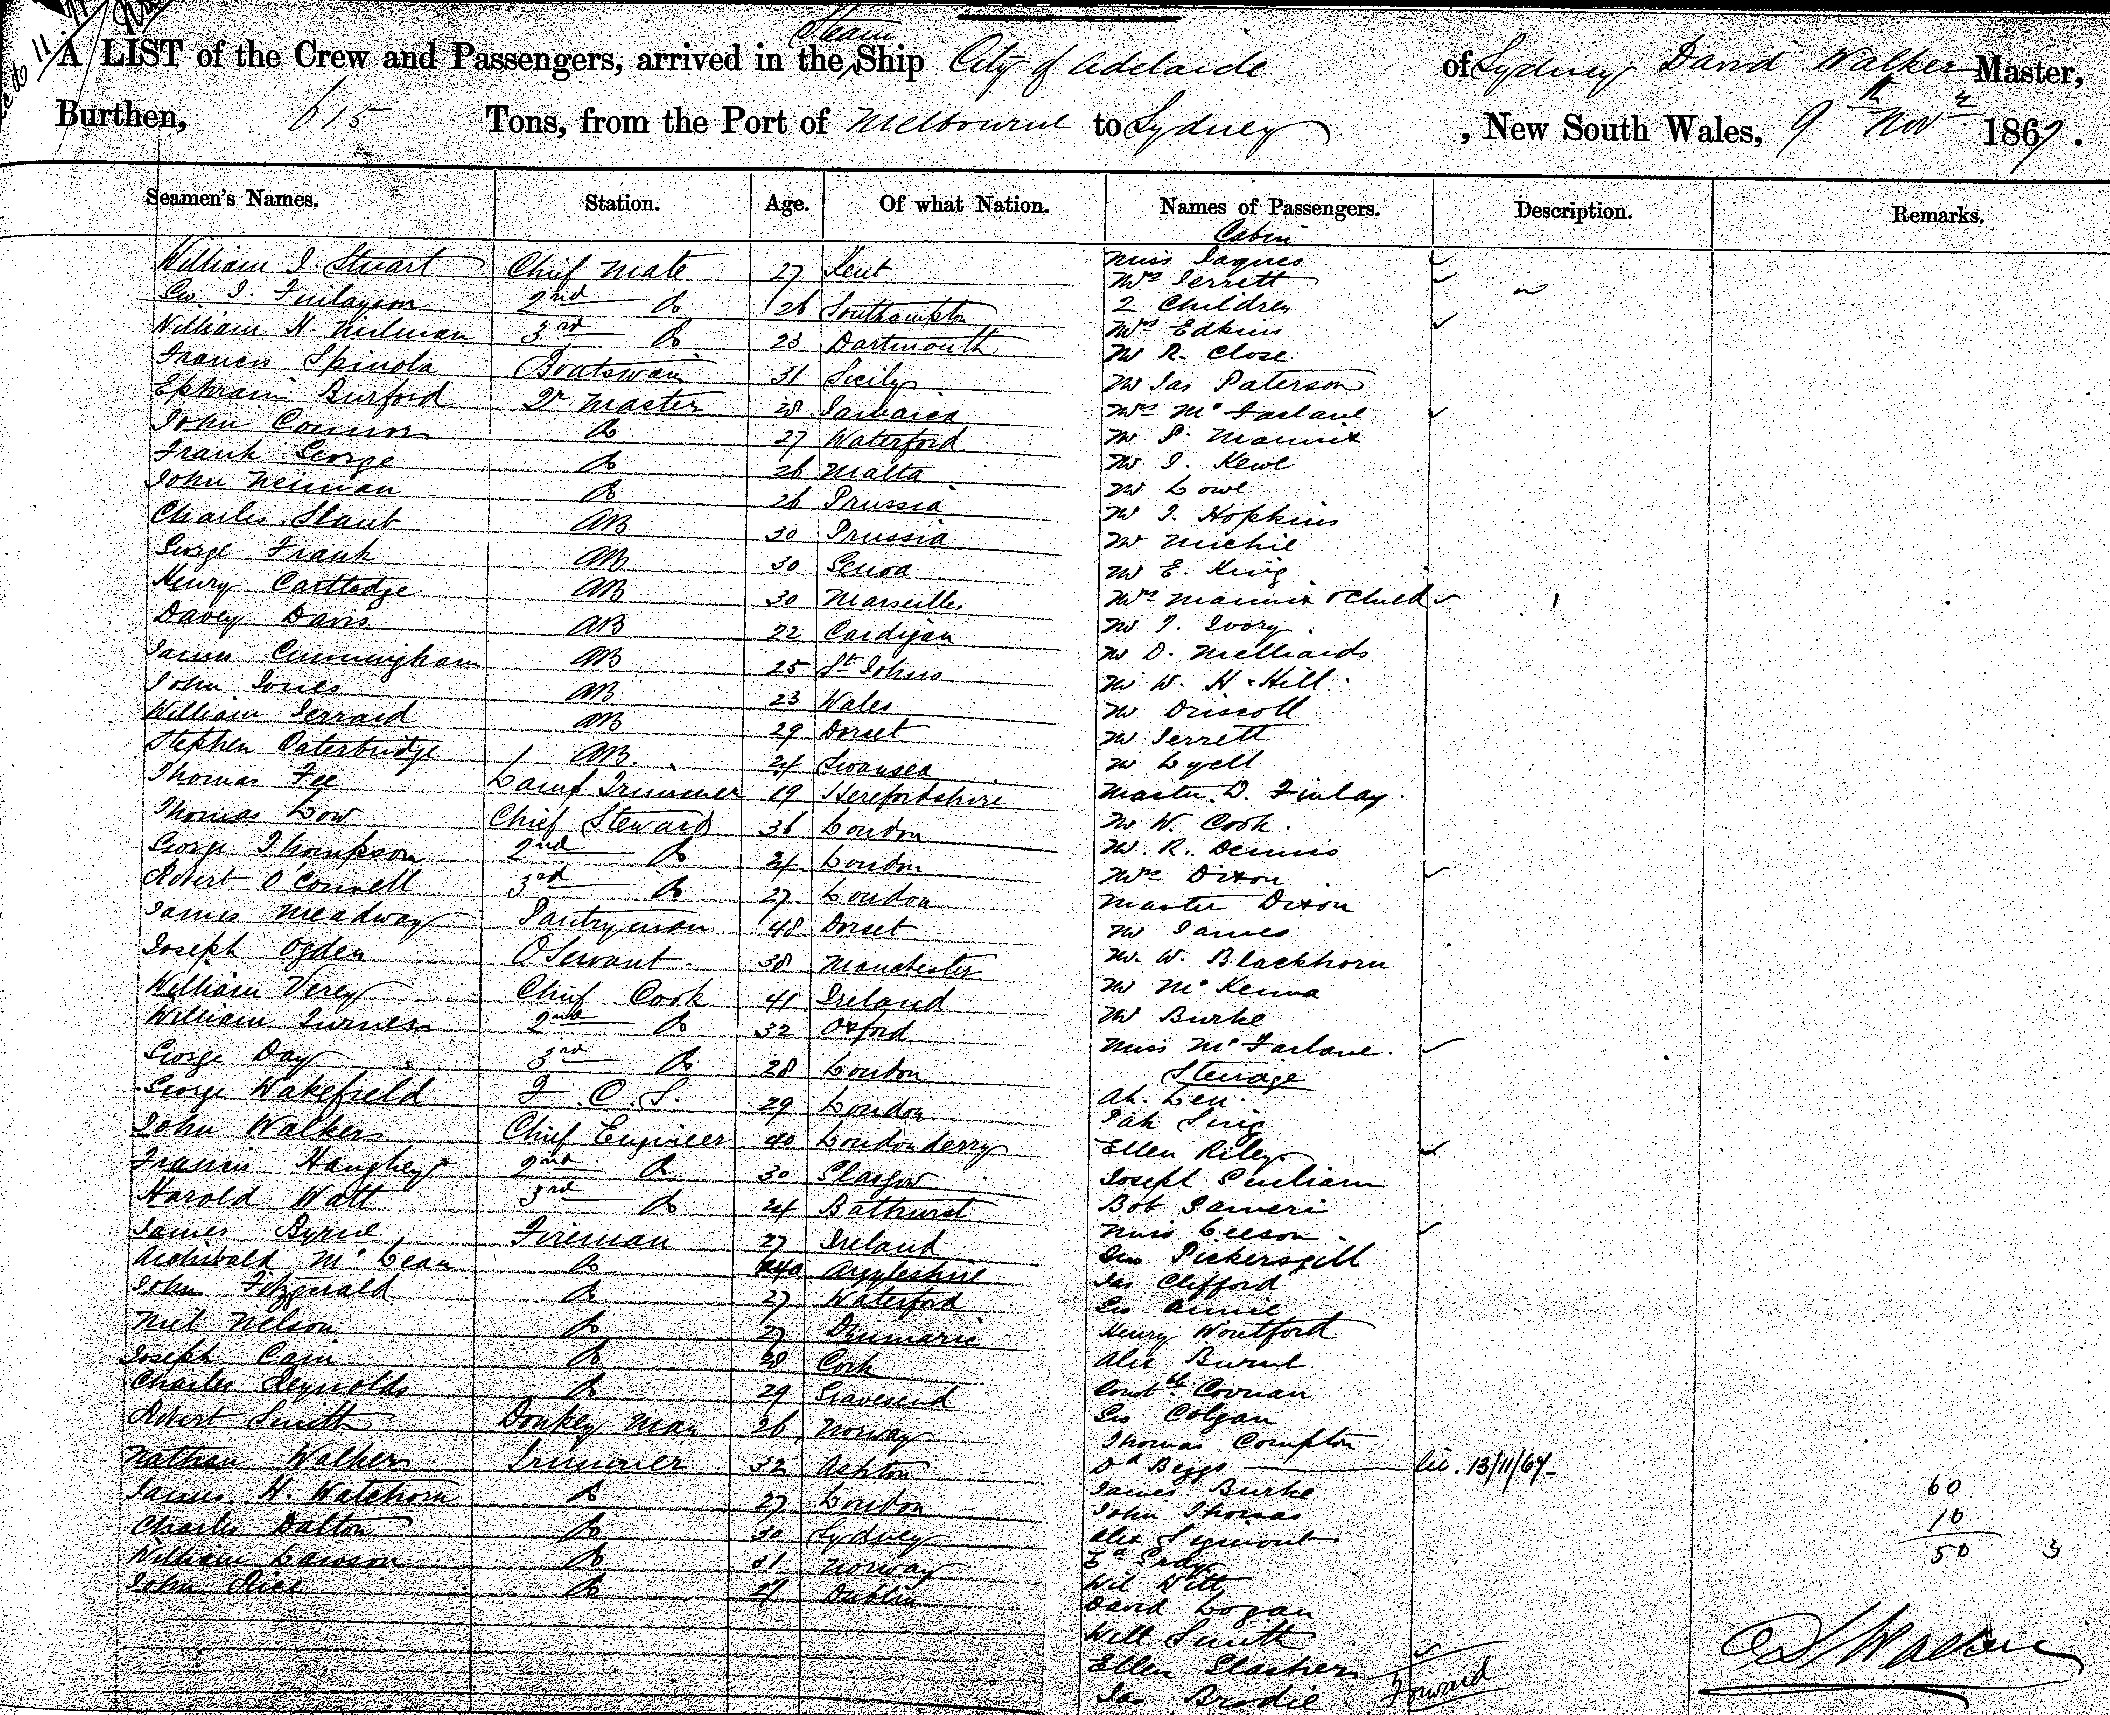 Steam
A LIST of the Crew and Passengers, arrived in the Ship City of Adelaide of Sydney David Walker Master,
Burthen, 615 Tons, from the Port of Melbourne to Sydney, New South Wales, 9th Novr 1867.
Seamen's Names. Station. Age. Of what Nation. Names of Passengers. Description. Remarks.
Cabin
William J. Stuart Chief Mate 27 Kent Miss Jaques
Geo. J. Finlayson 2nd Do 26 Southampton Mrs Jerrett
2 Children
William H. Milman 3rd Do 23 Dartmouth Mrs Edkins
Francis Spinola Boatswain 31 Sicily Mr R. Close
Ephraim Burford Qr Master 28 Jamaica Mr Jas Paterson
John Connor Do 27 Waterford Mrs McFarlane
Frank George Do 26 Malta Mr P. Mannix
John Neiman Do 26 Prussia Mr J. Kewl
Charles Staub AB 30 Prussia Mr Lowe
George Frank AB 30 Genoa Mr J. Hopkins
Henry Cartledge AB 30 Marseilles Mr Michie
Davey Davis AB 22 Cardigan Mr E. King
James Cunningham AB 25 St Johns Mrs Mannix & Child
John Jones AB 23 Wales Mr J. Ivory
William Jerrard AB 29 Dorset Mr D.
Stephen Outerbridge AB 24 Swansea Mr W. H. Hill
Thomas Fee Lamp Trimmer 19 Herefordshire Mr Driscoll
Thomas Low Chief Steward 36 London Mr Jerrett
George Thompson 2nd Do 24 London Mr Lyell
Robert O'Connell 3rd Do 27 London Master D. Finlay
James Meadway Pantryman 48 Dorset Mr W. Cook
Joseph Ogden O Servant 38 Manchester Mr R. Dennis
William Verey Chief Cook 41 Ireland Mrs Dixon
William Turner 2nd Do 32 Oxford Master Dixon
George Day 3rd Do 28 London Mr James
George Wakefield F.C.S. 29 London Mr W. Blackhorn
John Walker Chief Engineer 40 Londonderry Mr McKenna
Francis Haughey 2nd Do 30 Glasgow Mr Burke
Harold Watt 3rd Do 24 Bathurst Miss McFarlane
James Byrne Fireman 27 Ireland Steerage
Archibald McLean Do 40 Argyleshire Ah. Len
John Fitzgerald Do 27 Waterford Pah Sing
Neil Nelson Do 27 Ellen Riley
Joseph Cain Do 28 Cork Joseph
Charles Reynolds Do 29 Gravesend Bob
Robert Smith Donkey Man 26 Norway Miss Leeson
Nathan Walker Trimmer 32 Ashton Geo Pickersgill
James H. Watehorn Do 27 London Jas Clifford
Charles Dalton Do 30 Sydney Geo Annie
William Lawson Do 31 Norway Henry Woutford
John Rice Do 27 Dublin Alex Burne
Constle Coonan
Geo Colgan
Thomas Compton
Dd Beggs lic. 13/11/67
James Burke 60
John Thomas 10
Alex 50
Ed Eady
Wil Witty
David Logan
Will Smith
Ellen Slashern
Jas Brodie Forward
D Walker